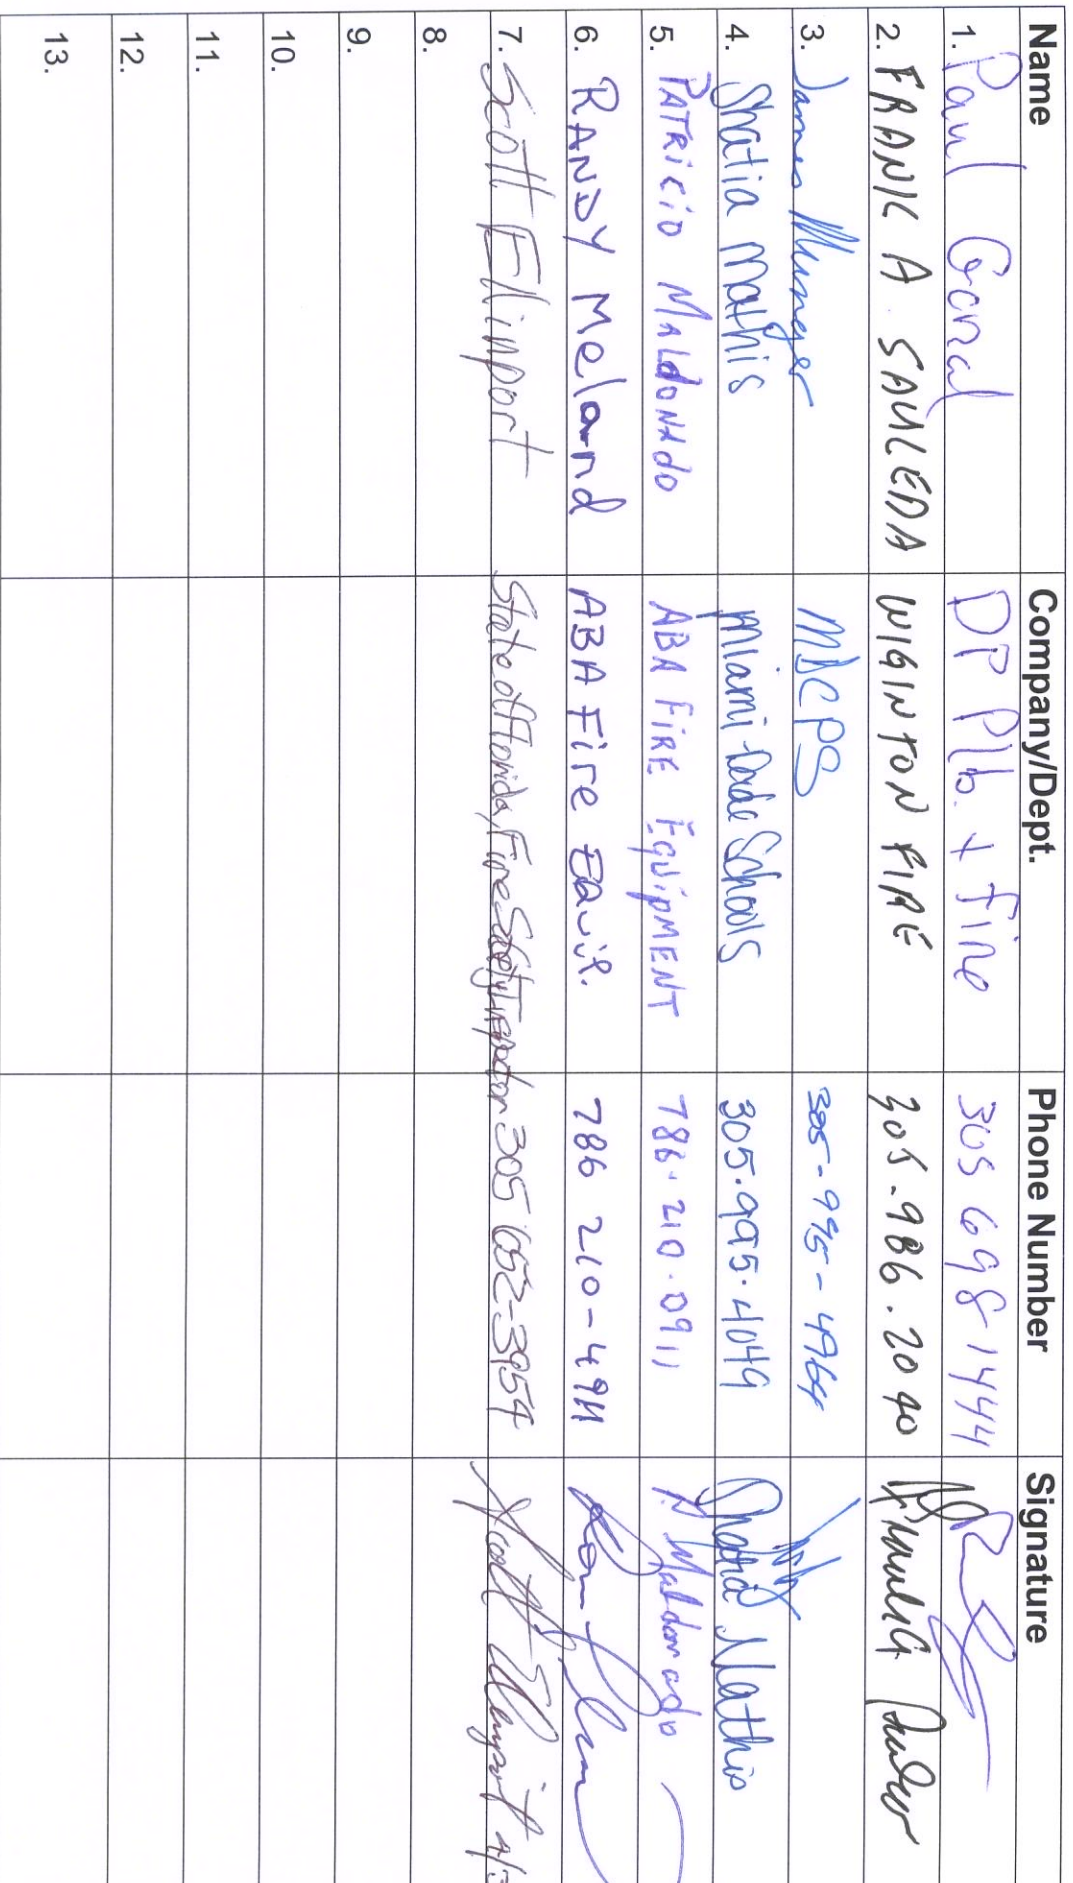 Name Company/Dept. Phone Number Signature
1. Paul DP Plb. + fire 305 698 1444
2. FRANK A. SAULEDA WIGINTON FIRE 305.986.2040
3. James Munger MDCPS 305-995-4964
4. Shatia Mathis Miami-Dade Schools 305.995.4049 Shatia Mathis
5. PATRICIO MALDONADO ABA FIRE EQUIPMENT 786.210.0911 P. Maldonado
6. RANDY Meland ABA Fire EQUIP. 786 210-4911
7. Scott Ellinport State of Florida, Fire Safety Inspector 305 652-3954
8.
9.
10.
11.
12.
13.